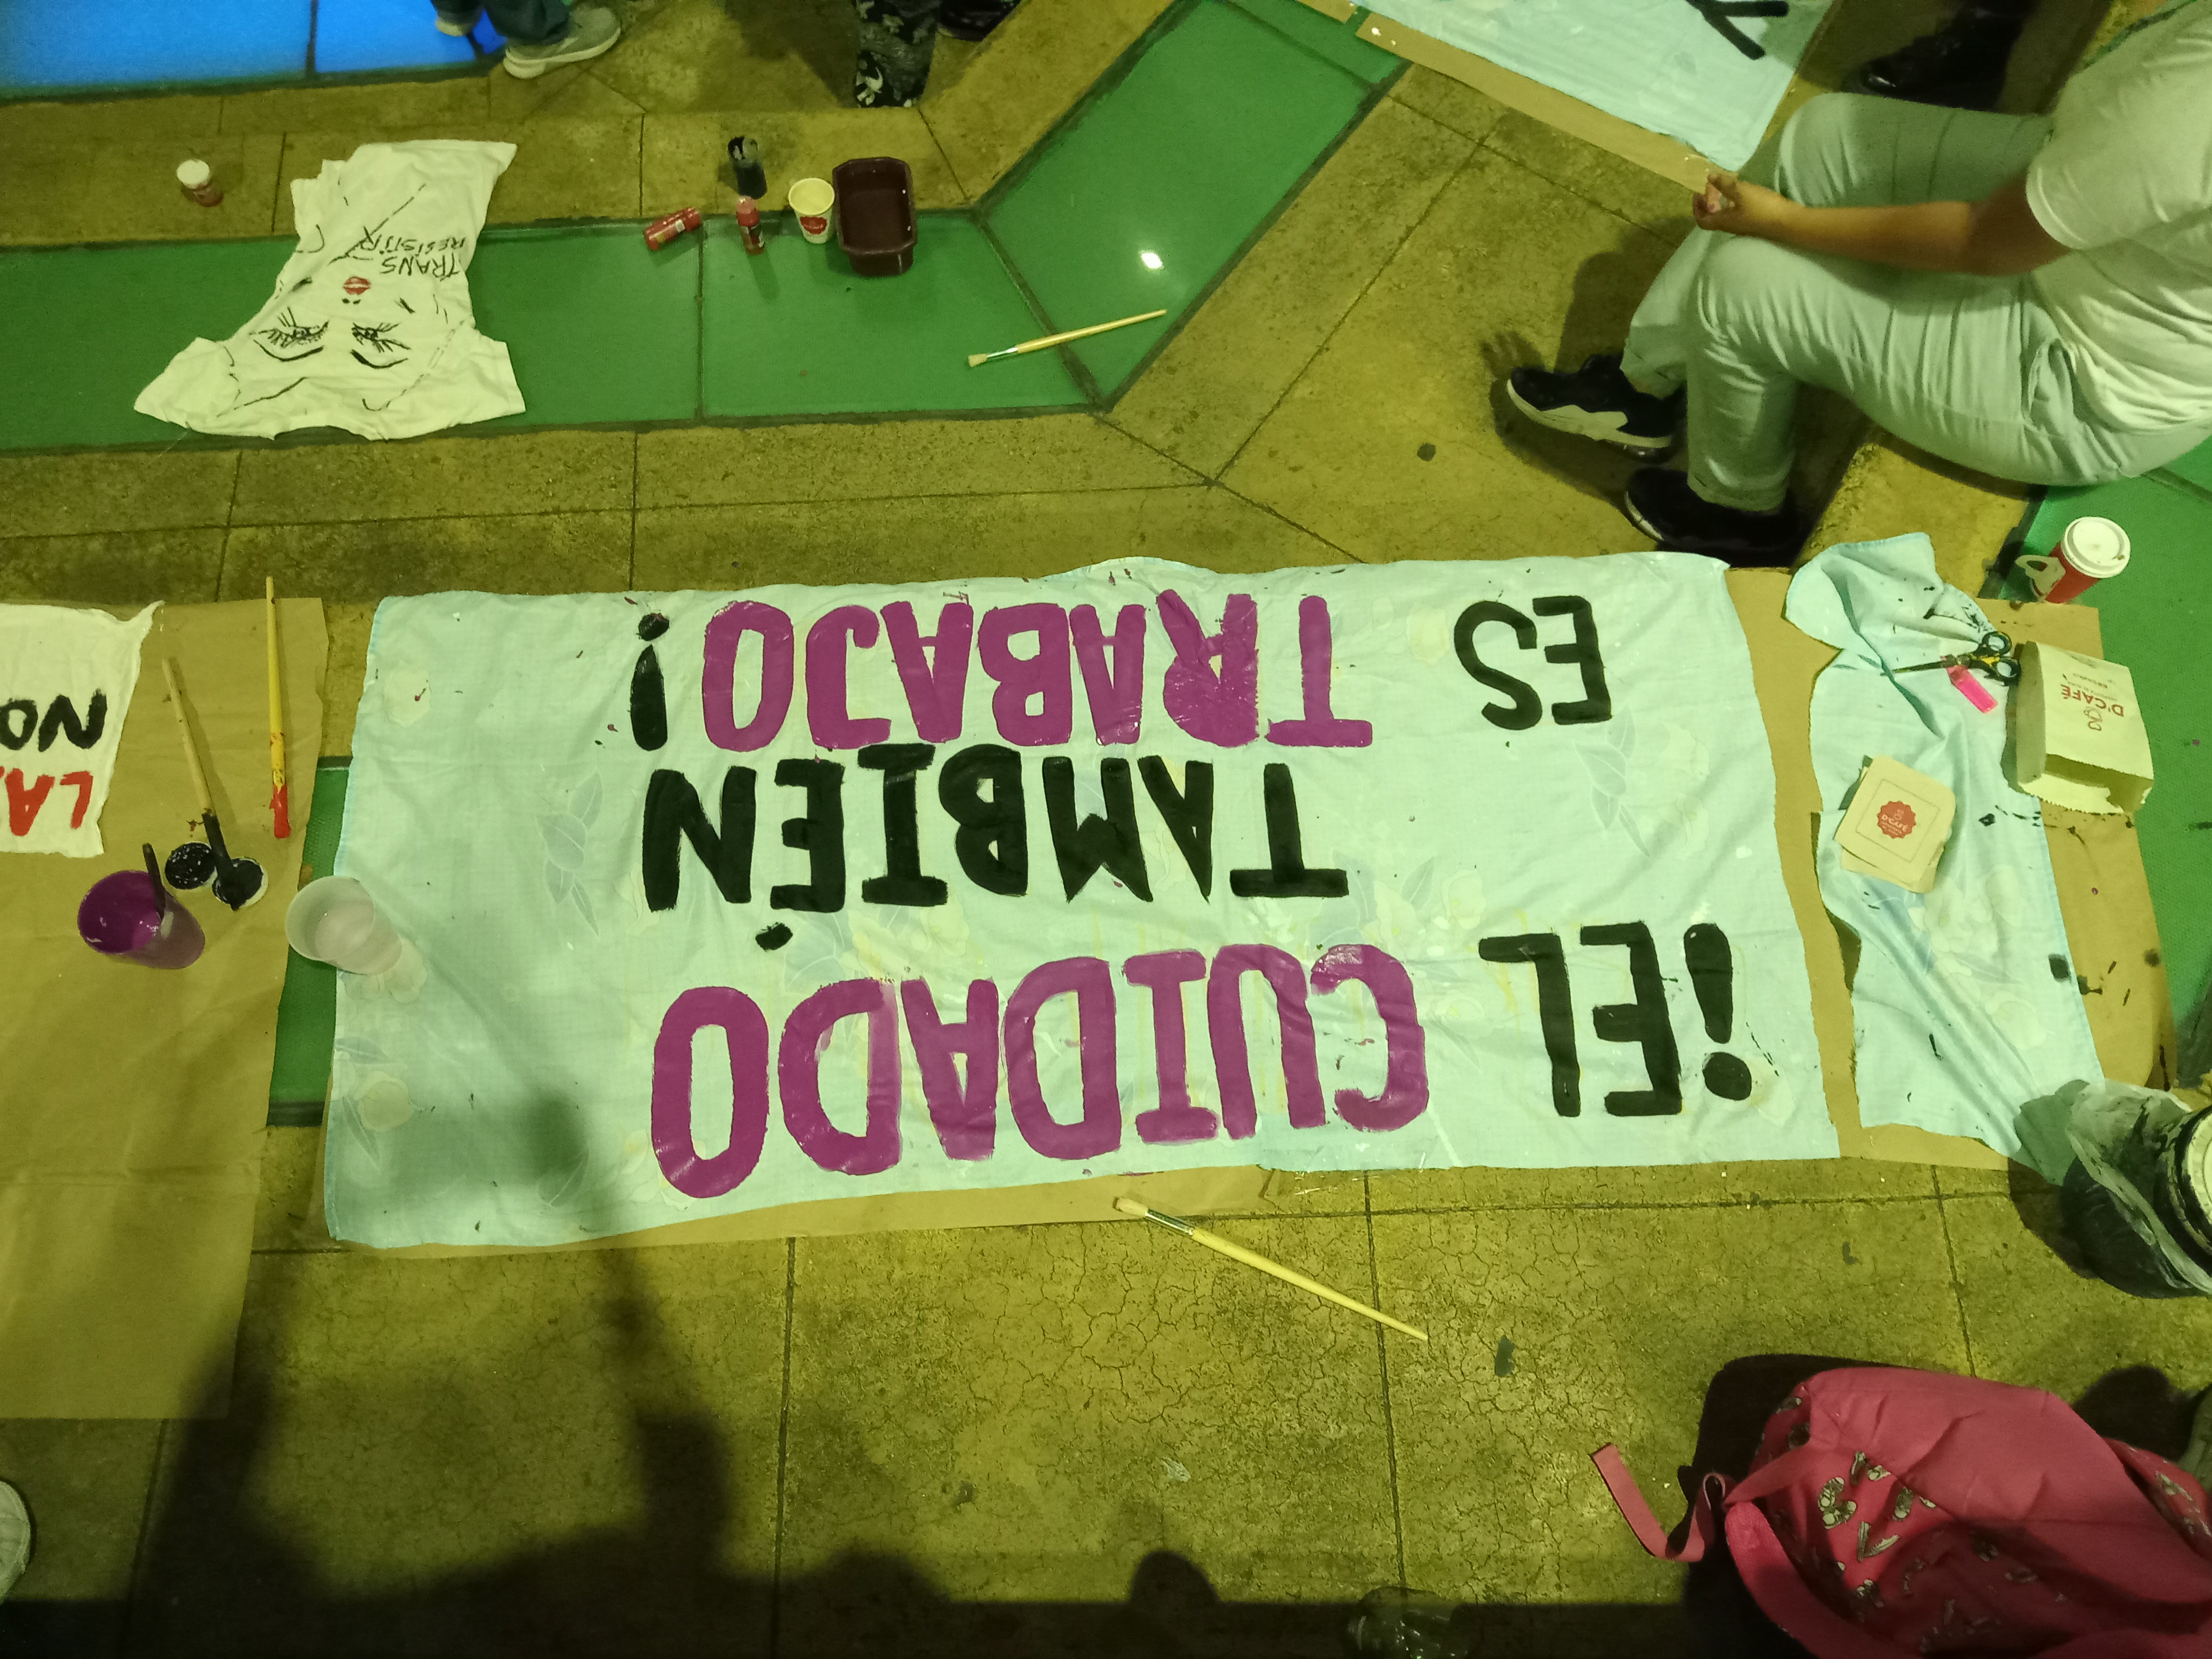 ¡EL CUIDADO
TAMBIÉN
ES TRABAJO!
LA
NO
D'CAFÉ
TRANS
RESISTIR